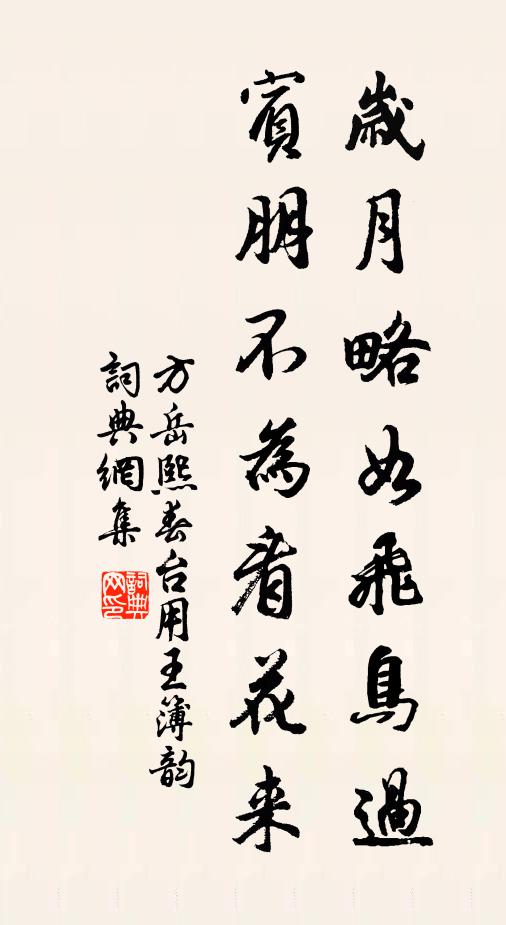 歲月略如飛鳥過
賓朋不為看花来
方岳熙春台用王簿韵
詞典網集
詞典網印